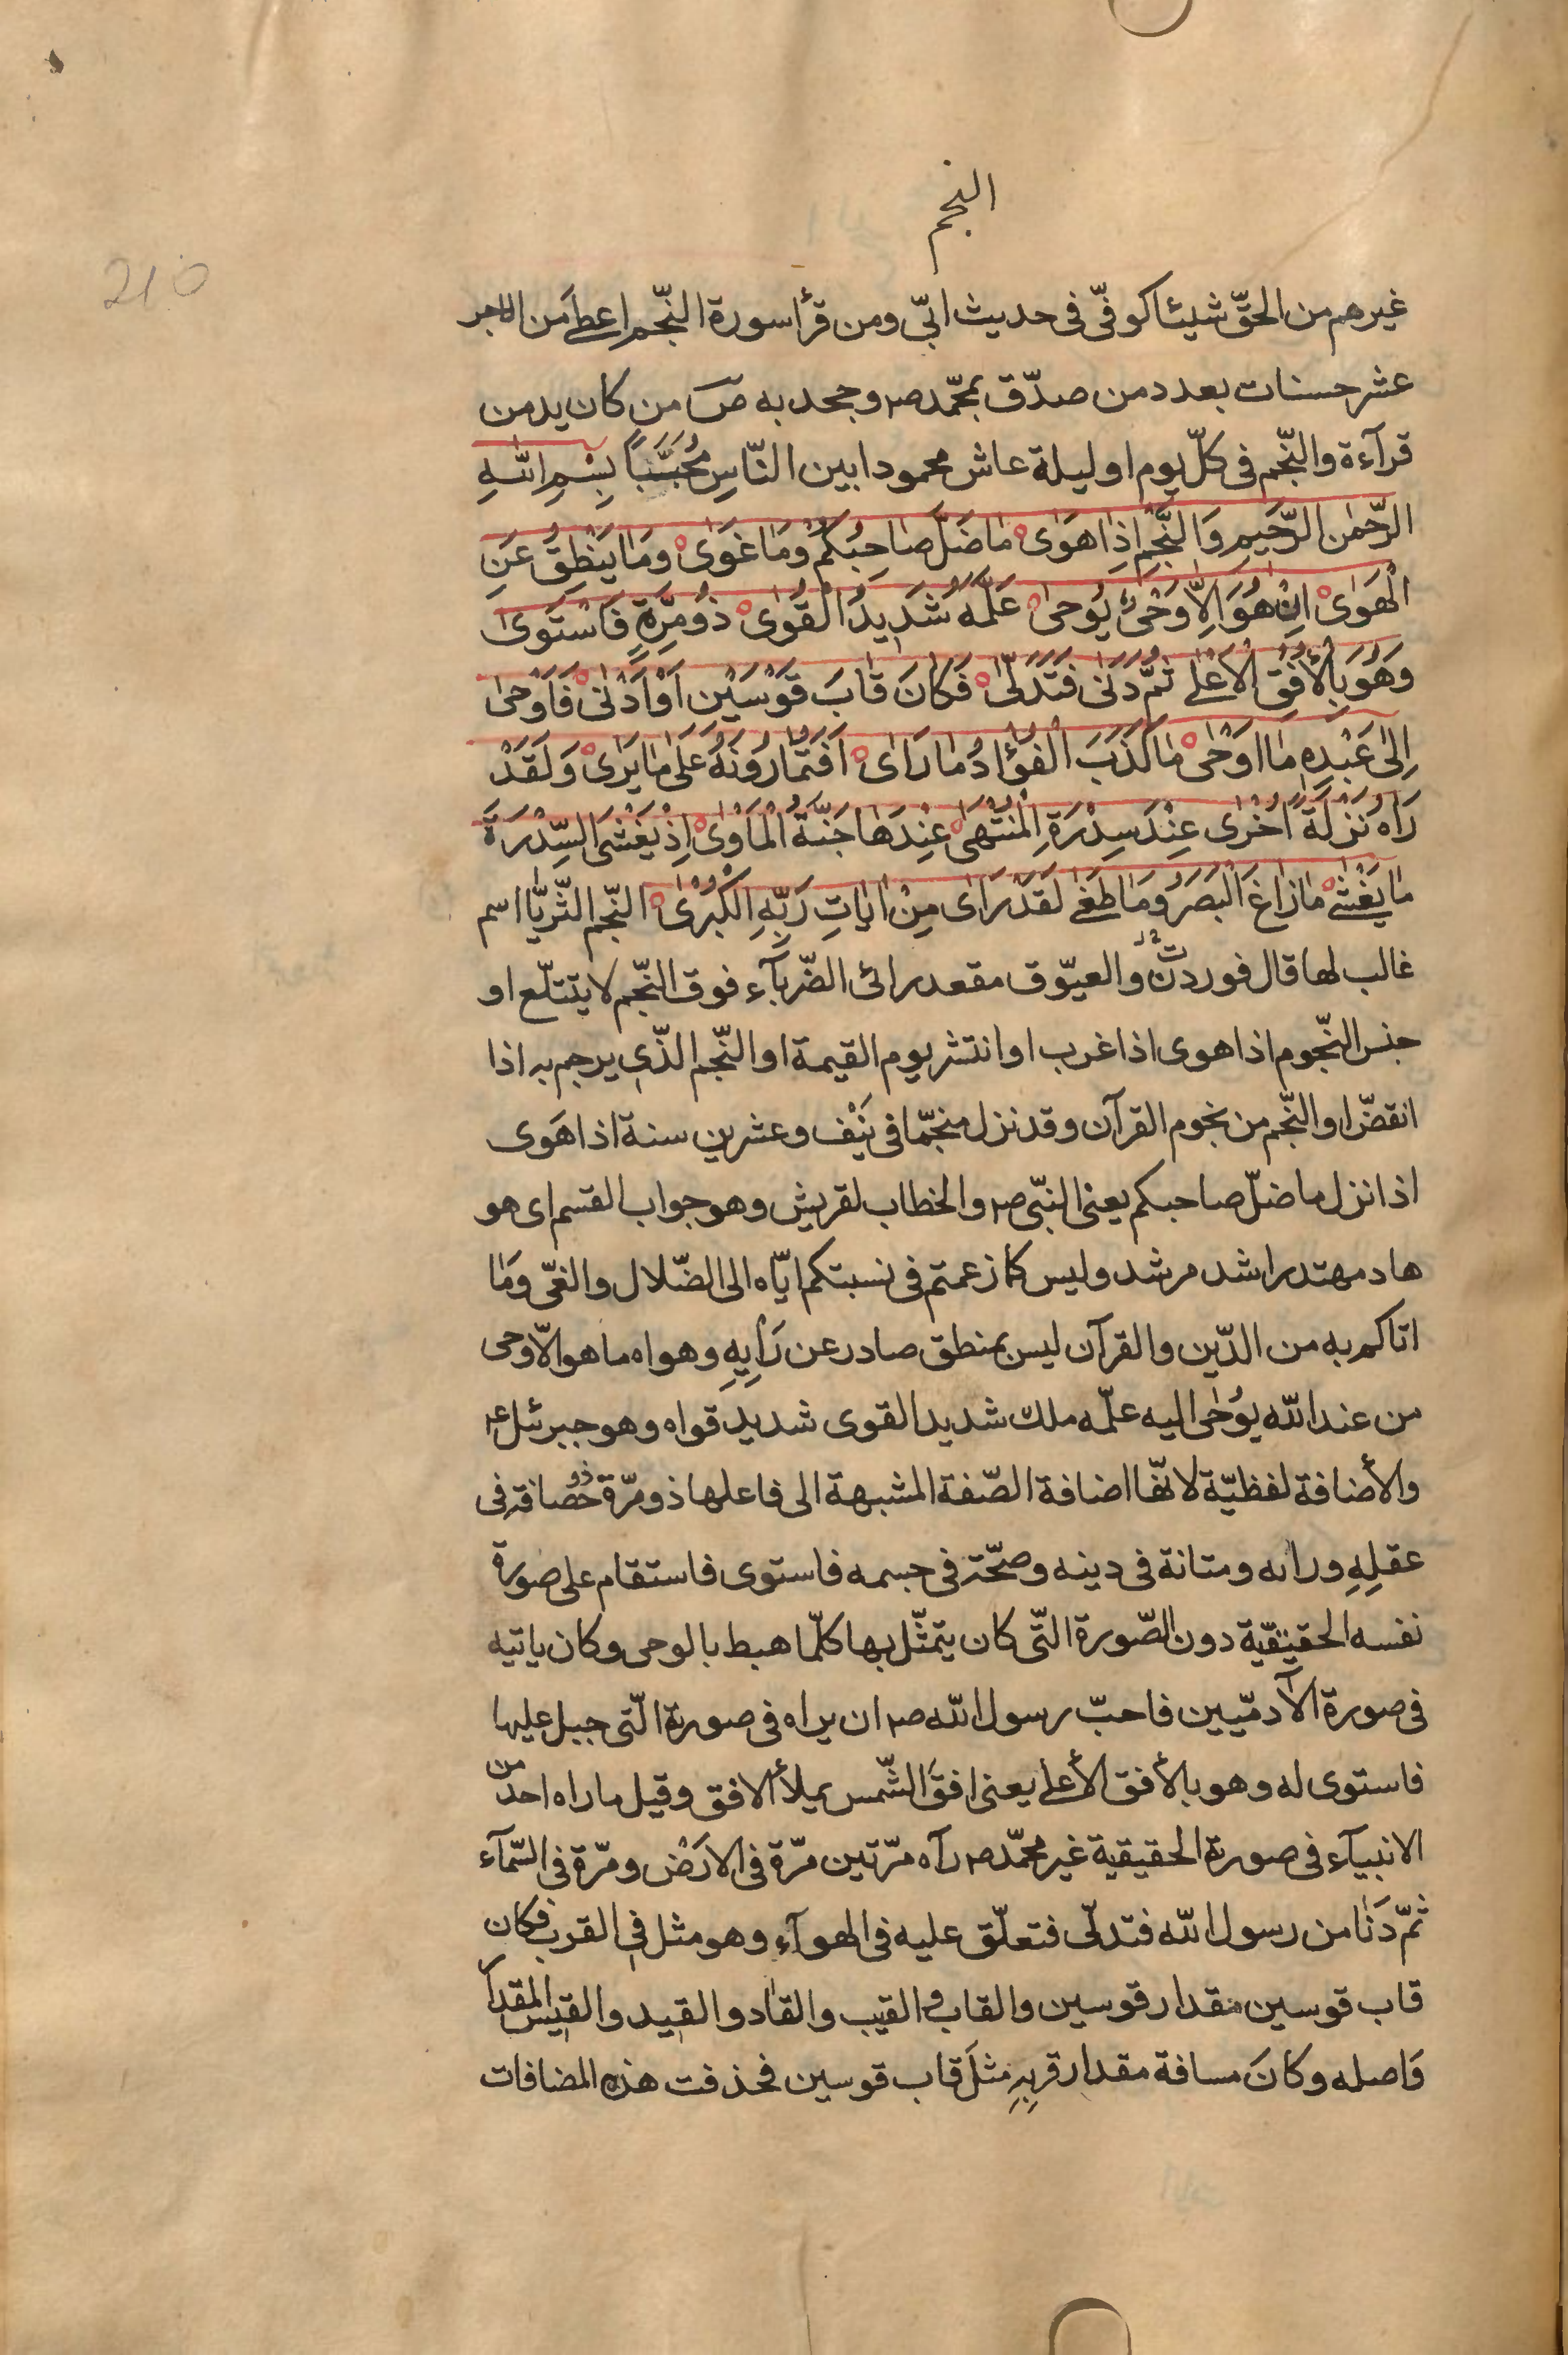 النجم
210
غيرهم من الحقّ شيئا كوفيّ فى حديث ابىّ ومن قرأ سورة النّجم اعطى من الاجر
عشر حسنات بعدد من صدّق بمحمّد ص۴ وجحد به ص من كان يدمن
قرآءة والنّجم فى كلّ يوم او ليلة عاش محمودا بين النّاسِ مُحَبَّباً بِسْمِ اللّٰهِ
الرّحمٰن الرّحيمِ وَالنَّجْمِ اِذٰا هَوىٰ مٰا ضَلَّ صٰاحِبُكُمْ وَمٰا غَوىٰ وَمٰا يَنْطِقُ عَنِ
الْهَوىٰ اِنْ هُوَ اِلاّٰ وَحْىٌ يُوحىٰ عَلَّمَهُ شَدِيدُ الْقُوىٰ ذُو مِرَّةٍ فَاسْتَوىٰ
وَهُوَ بِالْأُفُقِ الْاَعْلىٰ ثُمَّ دَنىٰ فَتَدَلّىٰ فَكٰانَ قٰابَ قَوْسَيْنِ اَوْ اَدْنىٰ فَاَوْحىٰ
اِلىٰ عَبْدِهِ مٰا اَوْحىٰ مٰا كَذَبَ الْفُؤٰادُ مٰا رَاىٰ اَفَتُمٰارُونَهُ عَلىٰ مٰا يَرىٰ وَلَقَدْ
رَاٰهُ نَزْلَةً اُخْرىٰ عِنْدَ سِدْرَةِ الْمُنْتَهىٰ عِنْدَهٰا جَنَّةُ الْمَأْوىٰ اِذْ يَغْشَى السِّدْرَةَ
مٰا يَغْشىٰ مٰا زٰاغَ الْبَصَرُ وَمٰا طَغىٰ لَقَدْ رَاىٰ مِنْ اٰيٰاتِ رَبِّهِ الْكُبْرىٰ النّجم الثّريّا اسم
غالب لها قال فوردن والعيّوق مقعد رائى الضّربآء فوق النّجم لا يتتلّع او
جنس النّجوم اذا هوى اذا غرب او انتثر يوم القيمة او النّجم الذّى يرجم به اذا
انقضّ او النّجم من نجوم القرآن وقد نزل منجّما فى نَيْف وعشرين سنة اذا هَوى
اذا نزل ما ضلّ صاحبكم يعنى النبّى ص۴ والخطاب لقريش وهو جواب القسم اى هو
هاد مهتد راشد مرشد وليس كما زعمتم فى نسبتكم ايّاه الى الضّلال والغىّ وَمٰا
اتاكم به من الدّين والقرآن ليس بمنطق صادر عن رَأيِهِ وهواه ما هو الّا وحى
من عند اللّه يُوحىٰ اليه علّمه ملك شديد القوى شديد قواه وهو جبرئل ع۴
والأضافة لفظيّة لانّها اضافة الصّفة المشبهة الى فاعلها ذو مرّة ذو حصافة فى
عقلِهِ ورايه ومتانة فى دينه وصحّة فى جسمه فاستوى فاستقام على صورة
نفسه الحقيقيّة دون الصّورة التّى كان يتمثّل بها كلّما هبط بالوحى وكان ياتيه
فى صورة الآدميّين فاحبّ رسول اللّه ص۴ ان يراه فى صورته الّتى جبل عليها
فاستوى له وهو بالأفق الأعلى يعنى افق الشّمس يملأ الافق وقيل ما راه احد من
الانبيآء فى صورته الحقيقية غير محمّد ص۴ رآه مرّتين مرّة فى الارَضْ ومرّة فى السّمآء
ثمّ دَنٰا من رسول اللّه فتدلّى فتعلّق عليه فى الهوآء وهو مثل فى القرب فكان
قاب قوسين مقدار قوسين والقاب والقيب والقاد والقيد والقيس المقدار
وَاصله وكانَ مسافة مقدار قربِهِ مثلَ قاب قوسين فحذفت هذه المضافات